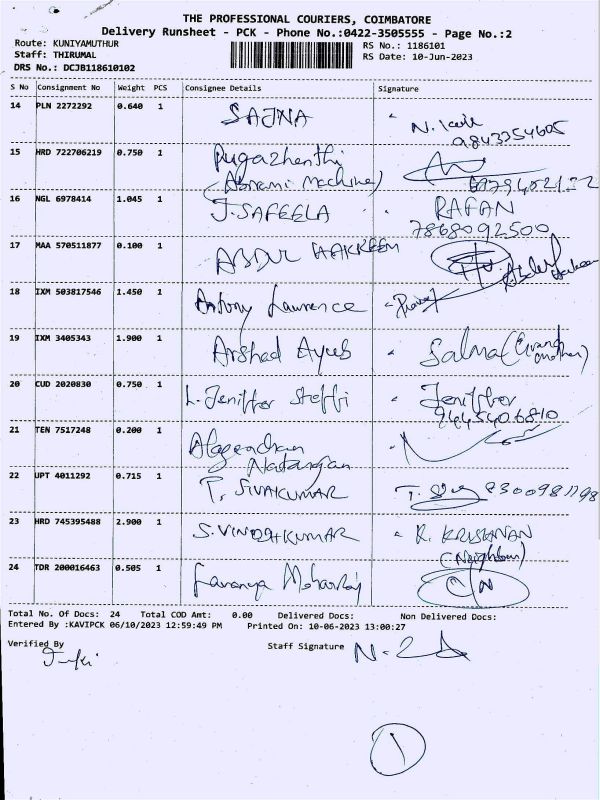 THE PROFESSIONAL COURIERS, COIMBATORE
Delivery Runsheet - PCK - Phone No.:0422-3505555 - Page No.:2
Route: KUNIYAMUTHUR
RS No.: 1186101
Staff: THIRUMAL
RS Date: 10-Jun-2023
DRS No.: DCJB118610102
S No Consignment No Weight PCS Consignee Details Signature
14 PLN 2272292 0.640 1 SAJNA
9843354605
15 HRD 722706219 0.750 1 Pugazhenthi
(Abirami Machine)
16 NGL 6978414 1.045 1 J.SAFEELA RAFAN
7868092500
17 MAA 570511877 0.100 1 ABDUL HAKKEEM
18 IXM 503817546 1.450 1 Antony Lawrence
19 IXM 3405343 1.900 1 Arshad Ayub Salma (Grand mother)
20 CUD 2020830 0.750 1 L. Jeniffer Steffi Jeniffer
9445406810
21 TEN 7517248 0.200 1 Alagendran
Natarajan
22 UPT 4011292 0.715 1 T. SIVAKUMAR 8300981198
23 HRD 745395488 2.900 1 S.VINOTHKUMAR R. KRISHNAN
(Neighbour)
24 TDR 200016463 0.505 1 Lavanya Mohanraj C/N
Total No. Of Docs: 24 Total COD Amt: 0.00 Delivered Docs: Non Delivered Docs:
Entered By :KAVIPCK 06/10/2023 12:59:49 PM Printed On: 10-06-2023 13:00:27
Verified By
Staff Signature
1